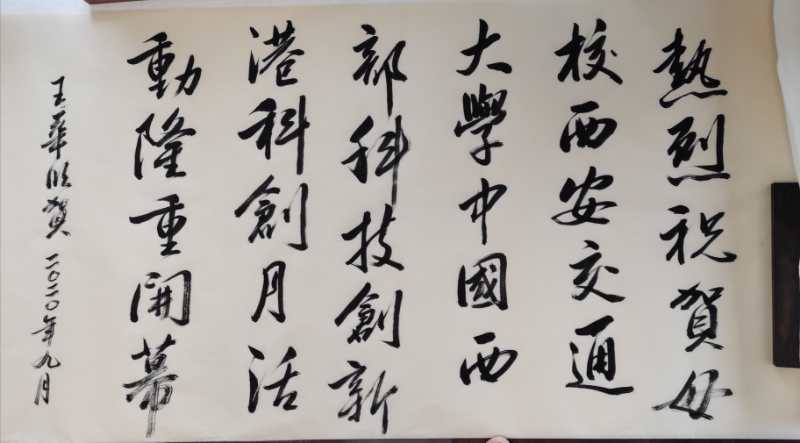 熱烈祝賀母
校西安交通
大學中國西
部科技創新
港科創月活
動隆重開幕
王華欣賀 二〇二〇年九月